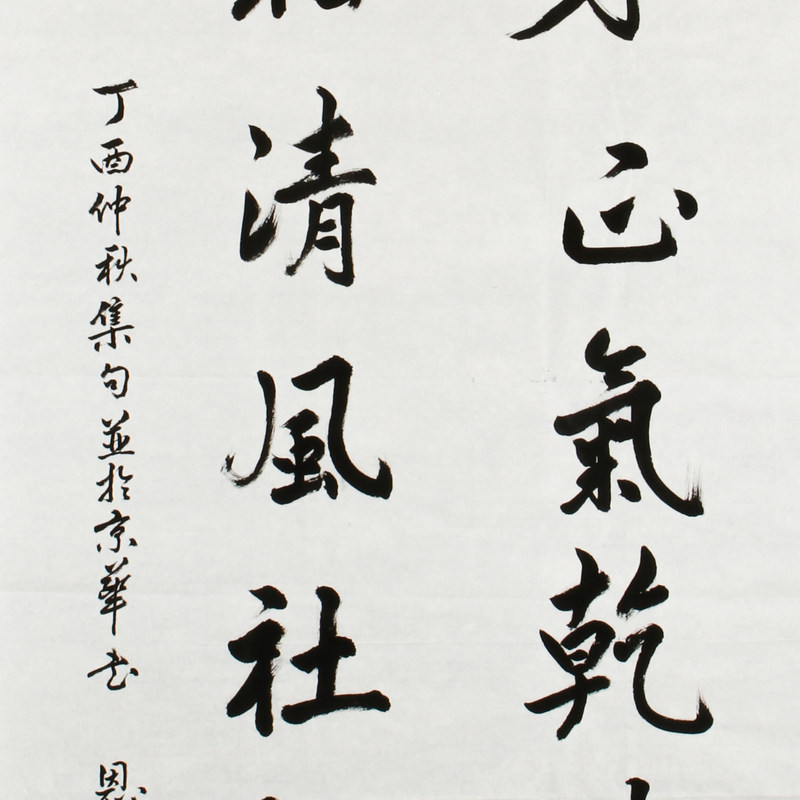 正氣乾
清風社
丁酉仲秋集句並於京華书 恩